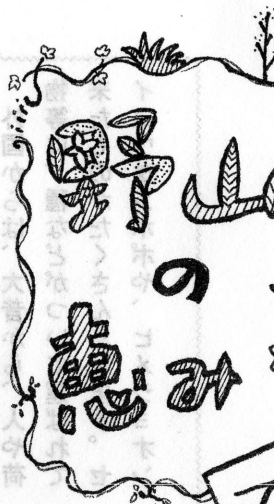 野山
の
恵み